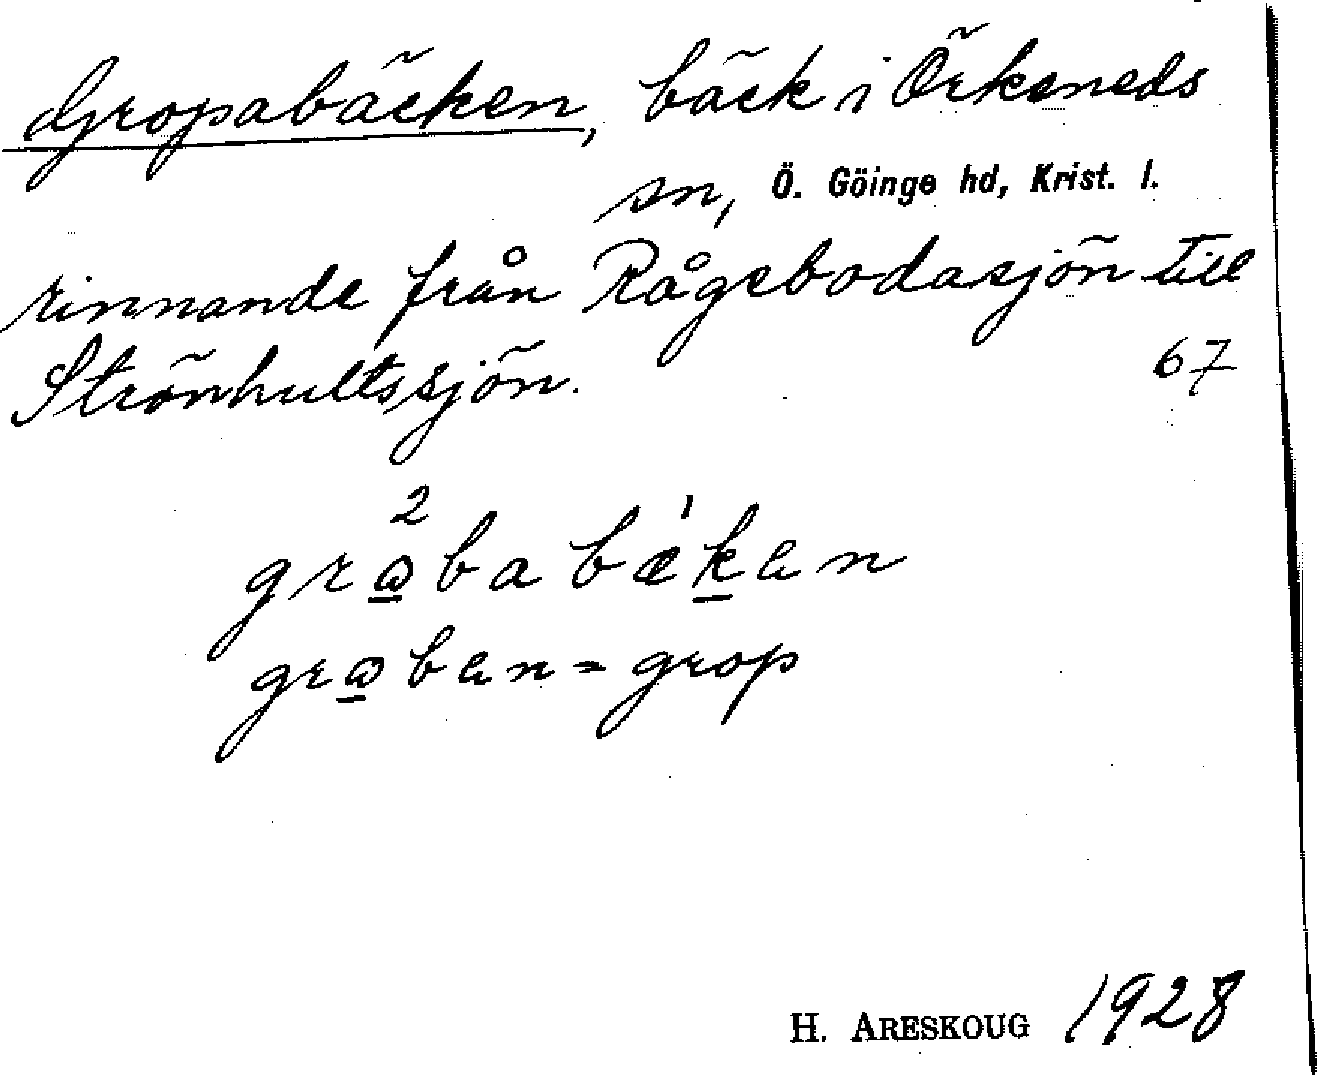 Gropabäcken, bäck i Örkeneds
sn, Ö. Göinge hd, Krist. l.
rinnande från Rågebodasjön till
Strönhultssjön. 67
2 ˈ
grω̲ba bæk̲ɐn
grω̲bɐn = grop
H. ARESKOUG 1928